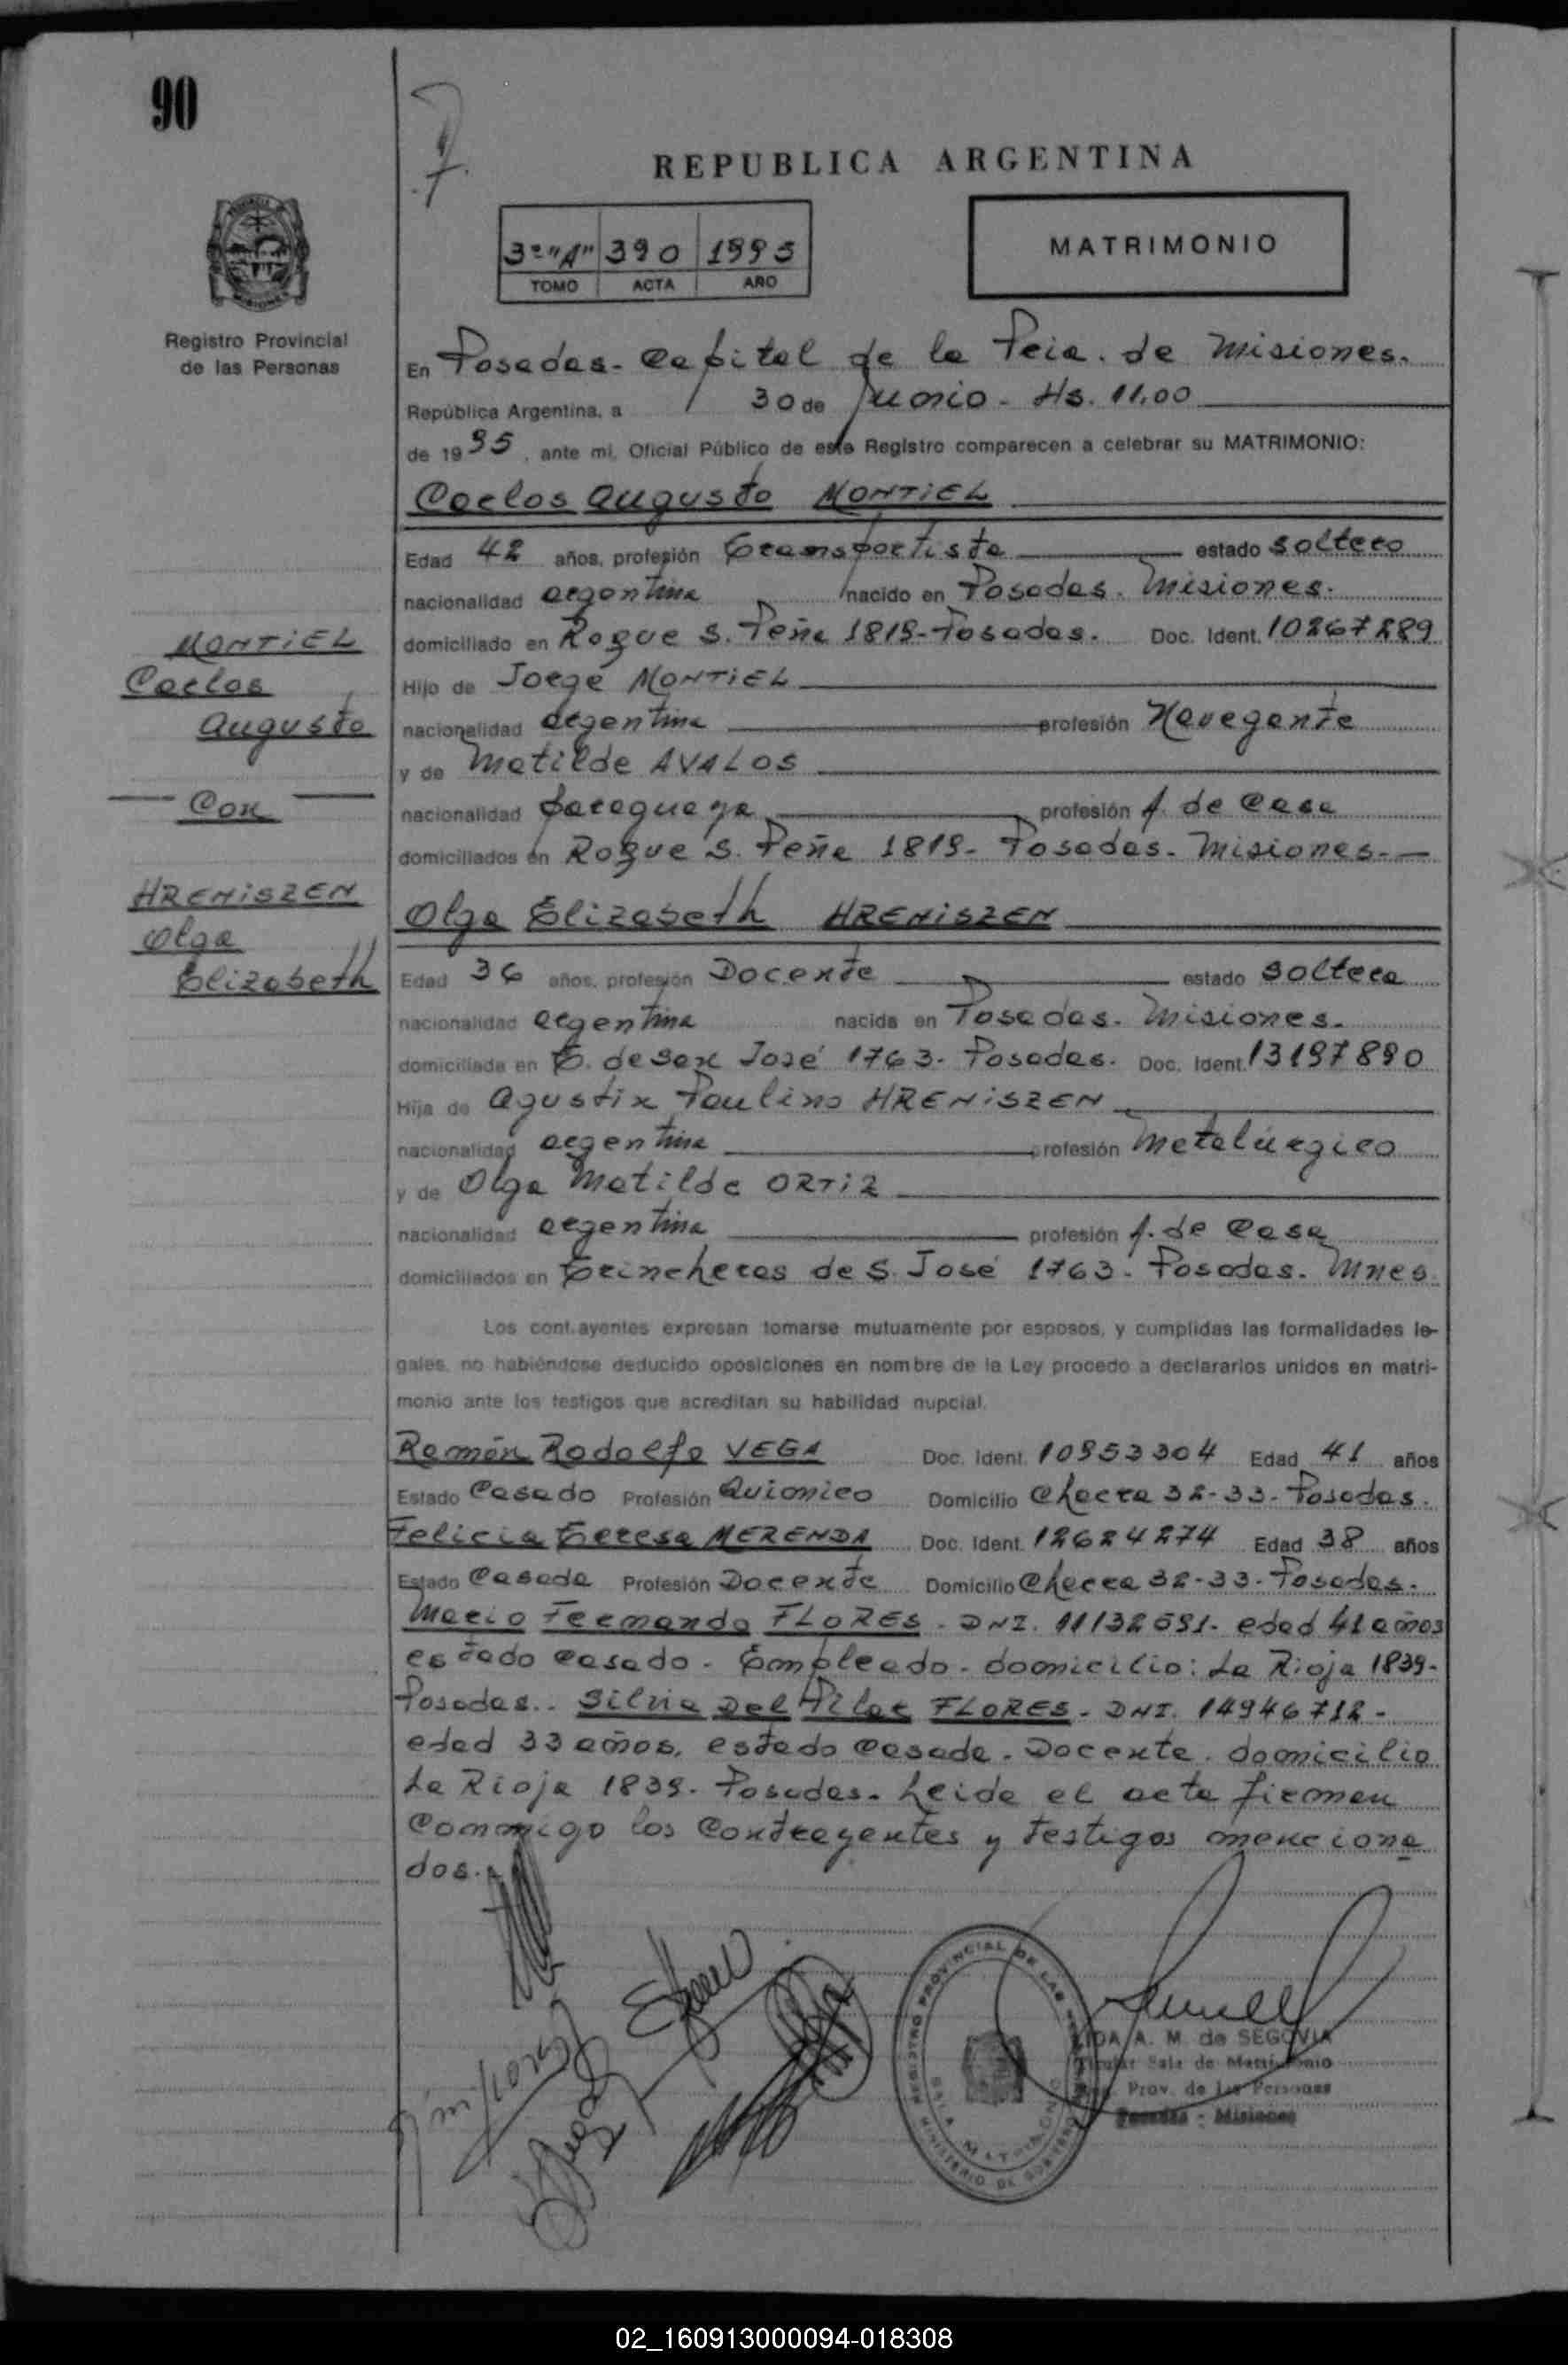 90
REPUBLICA ARGENTINA
3º "A" 390 1995
TOMO ACTA AÑO
MATRIMONIO
Registro Provincial
de las Personas
En Posadas - Capital de la Pcia. de Misiones.
República Argentina, a 30 de Junio - Hs. 11,00
de 1995, ante mi, Oficial Público de este Registro comparecen a celebrar su MATRIMONIO:
Carlos Augusto MONTIEL
Edad 42 años, profesión transportista estado soltero
nacionalidad argentina nacido en Posadas. Misiones.
domiciliado en Roque S. Peña 1819 - Posadas. Doc. Ident. 10267289
Hijo de Jorge MONTIEL
nacionalidad argentina profesión Navegante
y de Matilde AVALOS
nacionalidad paraguaya profesión A. de Casa
domiciliados en Roque S. Peña 1819 - Posadas - Misiones.-
MONTIEL
Carlos
Augusto
Con
HRENISZEN
Olga
Elizabeth
Olga Elizabeth HRENISZEN
Edad 36 años, profesión Docente estado soltera
nacionalidad argentina nacida en Posadas. Misiones.
domiciliada en T. de San José 1763 - Posadas. Doc. Ident. 13197890
Hija de Agustin Paulino HRENISZEN
nacionalidad argentina profesión Metalúrgico
y de Olga Matilde ORTIZ
nacionalidad argentina profesión A. de Casa
domiciliados en Trincheras de S. José 1763 - Posadas. Mnes.
Los contrayentes expresan tomarse mutuamente por esposos, y cumplidas las formalidades le-
gales, no habiéndose deducido oposiciones en nombre de la Ley procedo a declararlos unidos en matri-
monio ante los testigos que acreditan su habilidad nupcial.
Ramón Rodolfo VEGA Doc. Ident. 10953304 Edad 41 años
Estado Casado Profesión Quimico Domicilio Chacra 32-33 - Posadas.
Felicia Teresa MERENDA Doc. Ident. 12624274 Edad 38 años
Estado Casada Profesión Docente Domicilio Chacra 32-33 - Posadas.
Mario Fernando FLORES - DNI. 11132691 - edad 41 años
estado casado - Empleado - domicilio: La Rioja 1839 -
Posadas.. Silvia Del Pilar FLORES - DNI. 14946712 -
edad 33 años, estado casada. Docente. domicilio
La Rioja 1839 - Posadas. Leida el acta firman
Conmigo los Contrayentes y testigos menciona
dos.
REGISTRO PROVINCIAL DE LAS PERSONAS
SALA MATRIMONIO
MINISTERIO DE GOBIERNO
A. M. de SEGOVIA
Titular Sala de Matrimonio
Reg. Prov. de las Personas
Posadas - Misiones
02_160913000094-018308